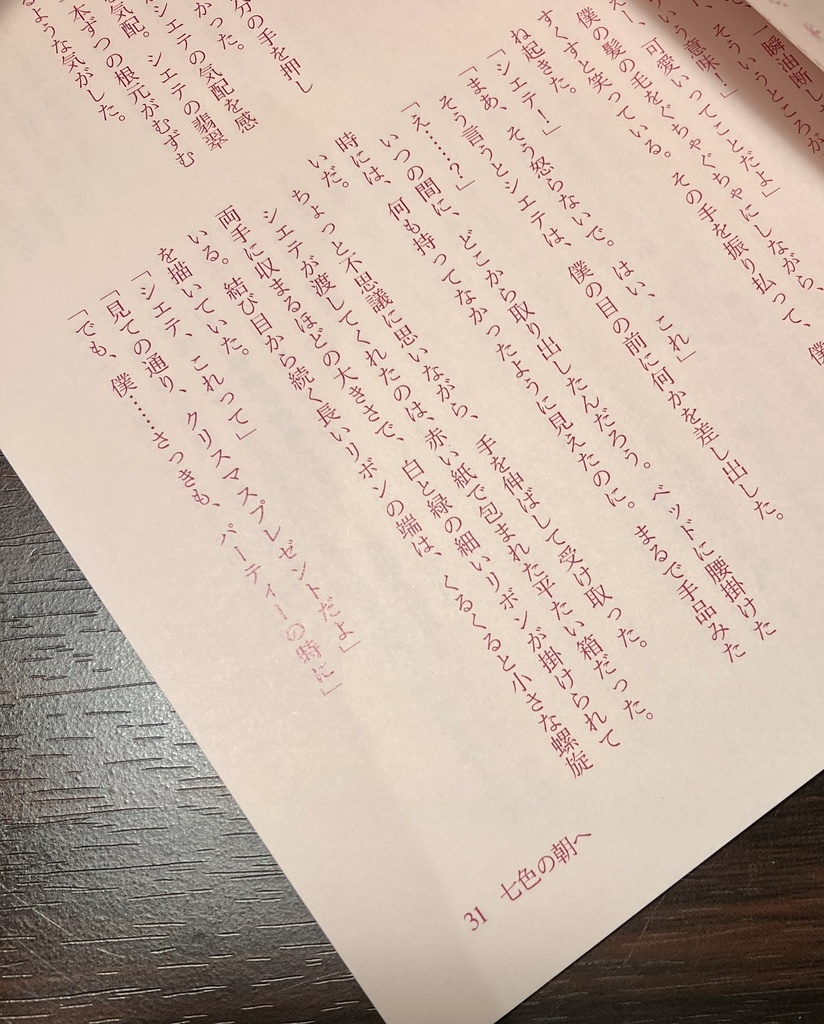 分の手を押し
シエテの気配を感
かった。
気配。シエテの翡翠
本ずつの根元がむずむ
るような気がした。
一瞬油断し
そういうところが
いう意味！
可愛いってことだよ」
僕の髪の毛をぐちゃぐちゃにしながら、
すくすと笑っている。その手を振り払って、僕
ね起きた。
「シエテ！」
「まあ、そう怒らないで。はい、これ」
そう言うとシエテは、僕の目の前に何かを差し出した。
「え……？」
いつの間に、どこから取り出したんだろう。ベッドに腰掛けた
時には、何も持ってなかったように見えたのに。まるで手品みた
いだ。
ちょっと不思議に思いながら、手を伸ばして受け取った。
シエテが渡してくれたのは、赤い紙で包まれた平たい箱だった。
両手に収まるほどの大きさで、白と緑の細いリボンが掛けられて
いる。結び目から続く長いリボンの端は、くるくると小さな螺旋
を描いていた。
「シエテ、これって」
「見ての通り、クリスマスプレゼントだよ」
「でも、僕……さっきも、パーティーの時に」
31 七色の朝へ